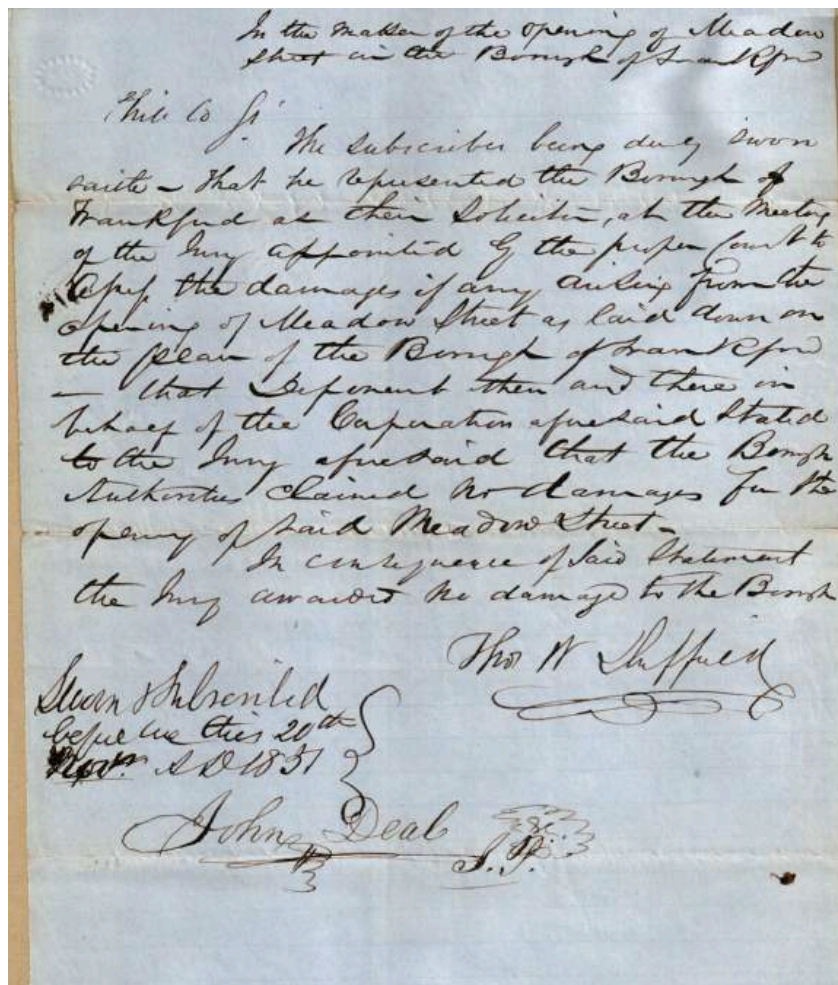 In the matter of the opening of Meadow
Street in the Borough of Frankford
Phil Co Ss.
The subscriber being duly sworn
saith - that he represented the Borough of
Frankford as their Solicitor, at the Meeting
of the Jury appointed by the proper Court to
assess the damages if any arising from the
opening of Meadow Street as laid down on
the plan of the Borough of Frankford
— that Deponent then and there in
behalf of the Corporation aforesaid Stated
to the Jury aforesaid that the Borough
Authorities claimed no damages for the
opening of said Meadow Street -
In consequence of said Statement
the Jury awarded no damage to the Borough
Thos W Duffield
Sworn & Subscribed
before me this 20th
Novr. A D 1851
John Deal
J. P.